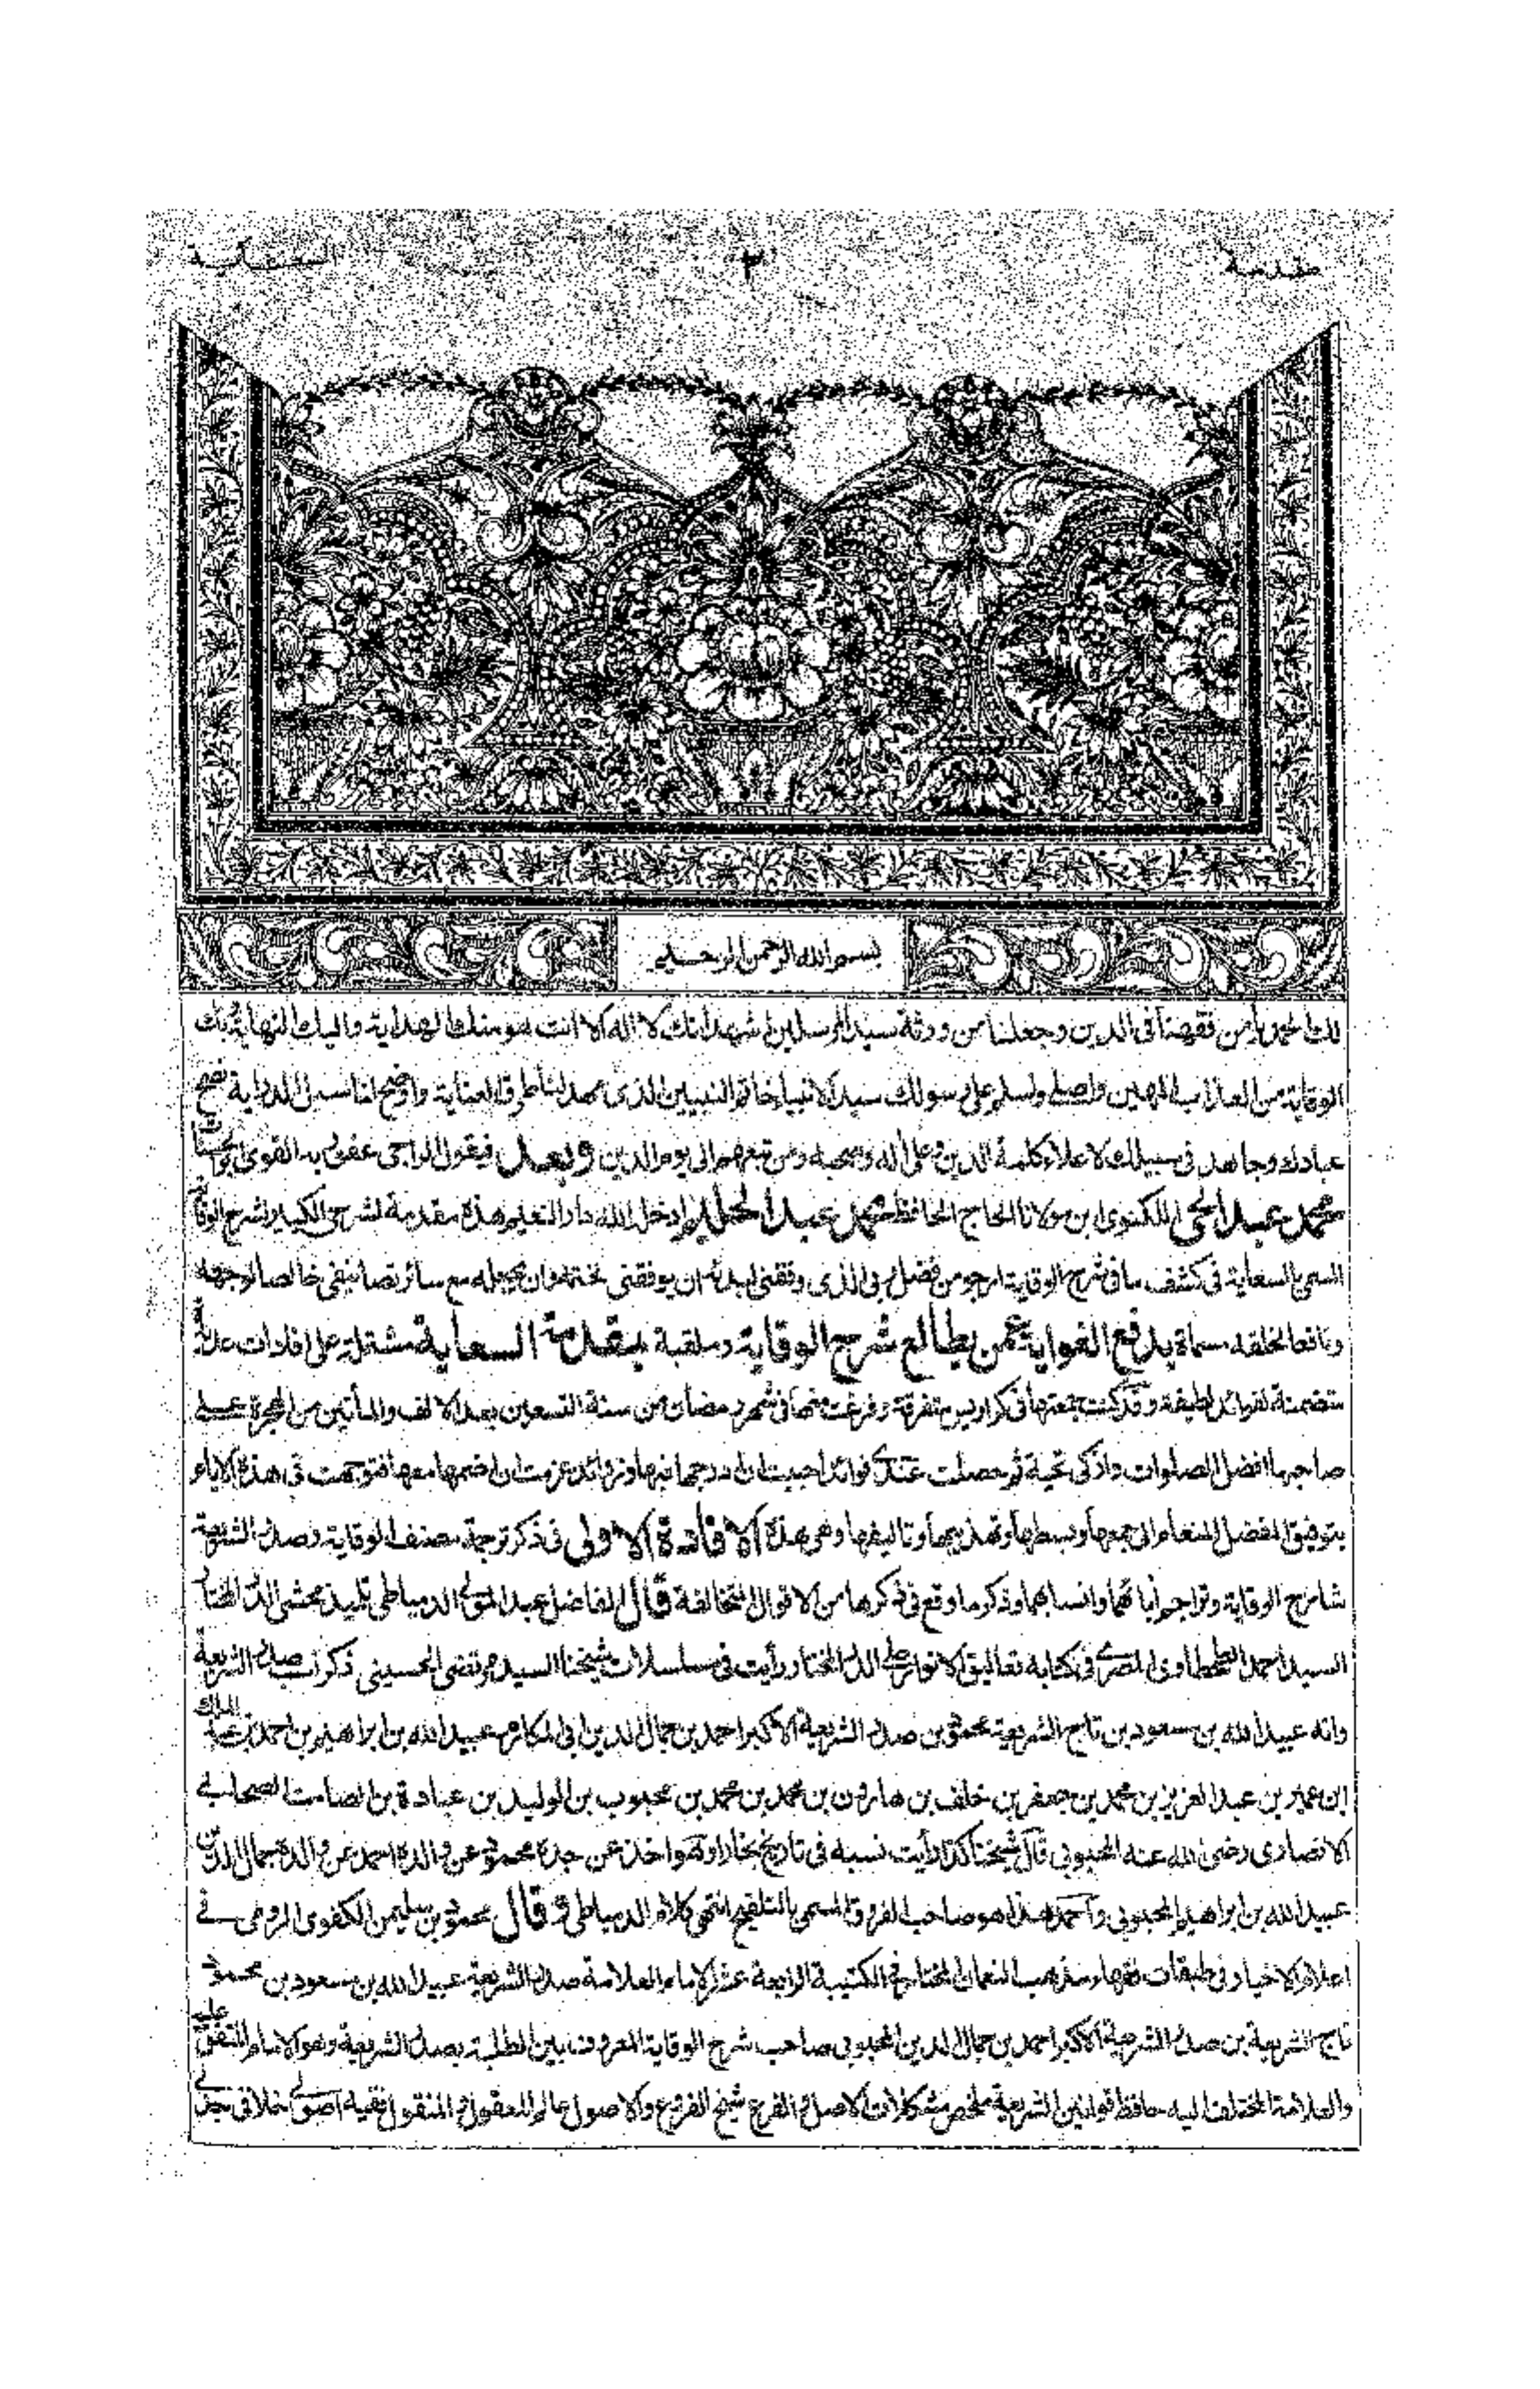 مقدمة ٢ السعاية
بسم الله الرحمن الرحيم
لك الحمد يا من فقهنا فى الدين وجعلنا من ورثة سيد المرسلين اشهد انك لا اله الا انت منك الهداية واليك النهاية بك
الوقاية من العذاب المهين واصلى واسلم على رسولك سيد الانبياء خاتم النبيين الذى مهد لنا طرق العناية واوضح لنا سبل الدراية نصح
عبادك وجاهد فى سبيلك لاعلاء كلمة الدين وعلى آله وصحبه ومن تبعهم الى يوم الدين وبعد فيقول الراجى عفو ربه القوى ابو الحسنات
محمد عبد الحى اللكنوى ابن مولانا الحاج الحافظ محمد عبد الحليم ادخله الله دار النعيم هذه مقدمة لشرحى الكبير لشرح الوقاية
المسمى بالسعاية فى كشف ما فى شرح الوقاية ارجو من فضل ربى الذى وفقنى لبدئه ان يوفقنى لختمه وان يجعله مع سائر تصانيفى خالصا لوجهه
ونافعا لخلقه مسماة بدفع الغواية عمن يطالع شرح الوقاية وملقبة بمقدمة السعاية مشتملة على افادات عديدة
متضمنة لفوائد لطيفة وقد كنت جمعتها فى كراريس متفرقة وفرغت منها فى شهر رمضان من سنة التسعين بعد الالف والمأتين من الهجرة على
صاحبها افضل الصلوات وازكى تحية ثم حصلت عندى فوائد احببت ان ادرجها فيها وزوائد عزمت ان اضمها معها فتوجهت فى هذه الايام
بتوفيق المفضل المنعام الى جمعها وبسطها وتهذيبها وتاليفها وهى هذه الافادة الاولى فى ذكر ترجمة مصنف الوقاية وصدر الشريعة
شارح الوقاية وتراجم آبائهما وانسابهما وذكر ما وقع فى ذكرها من الاقوال المتخالفة قال الفاضل عبد المولى الدمياطى تلميذ محشى الدر المختار
السيد احمد الطحطاوى المصرى فى كتابه تعاليق الانوار على الدر المختار رأيت فى مسلسلات شيخنا السيد مرتضى الحسينى ذكر نسب صدر الشريعة
وانه عبيد الله بن مسعود بن تاج الشريعة محمود بن صدر الشريعة الاكبر احمد بن جمال الدين ابى المكارم عبيد الله بن ابراهيم بن احمد بن عبد الملك
ابن عمير بن عبد العزيز بن محمد بن جعفر بن خلف بن هارون بن محمد بن محمد بن محبوب بن الوليد بن عبادة بن الصامت الصحابى
الانصارى رضى الله عنه المحبوبى قال شيخنا كذا رأيت نسبه فى تاريخ بخارا وهو اخذ عن جده محمود عن والده احمد عن والده جمال الدين
عبيد الله بن ابراهيم المحبوبى واحمد هذا هو صاحب الفروق المسمى بالتلقيح انتهى كلام الدمياطى وقال محمود بن سليمن الكفوى الرومى فى
اعلام الاخيار فى طبقات فقهاء مذهب النعمان المختار فى الكتيبة الرابعة عشر الامام العلامة صدر الشريعة عبيد الله بن مسعود بن محمود
تاج الشريعة بن صدر الشريعة الاكبر احمد بن جمال الدين المحبوبى صاحب شرح الوقاية المعروف بين الطلبة بصدر الشريعة وهو الامام المتفق عليه
والعلامة المختلف اليه حافظ قوانين الشريعة ملخص مشكلات الاصل والفرع شيخ الفروع والاصول عالم المعقول والمنقول فقيه اصولى خلافى جدلى